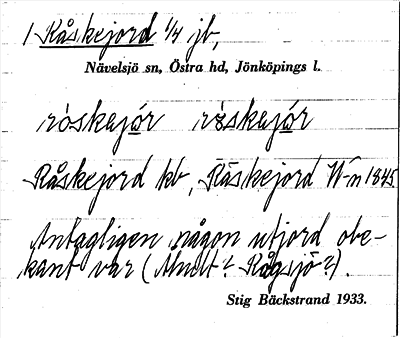 1 Råskejord 1/4 jb,
Nävelsjö sn, Östra hd, Jönköpings l.
råskajor råskajor
Råskejord kb, Råskejord W-n 1845
Antagligen någon utjord obe-
kant var ( ? ?).
Stig Bäckstrand 1933.